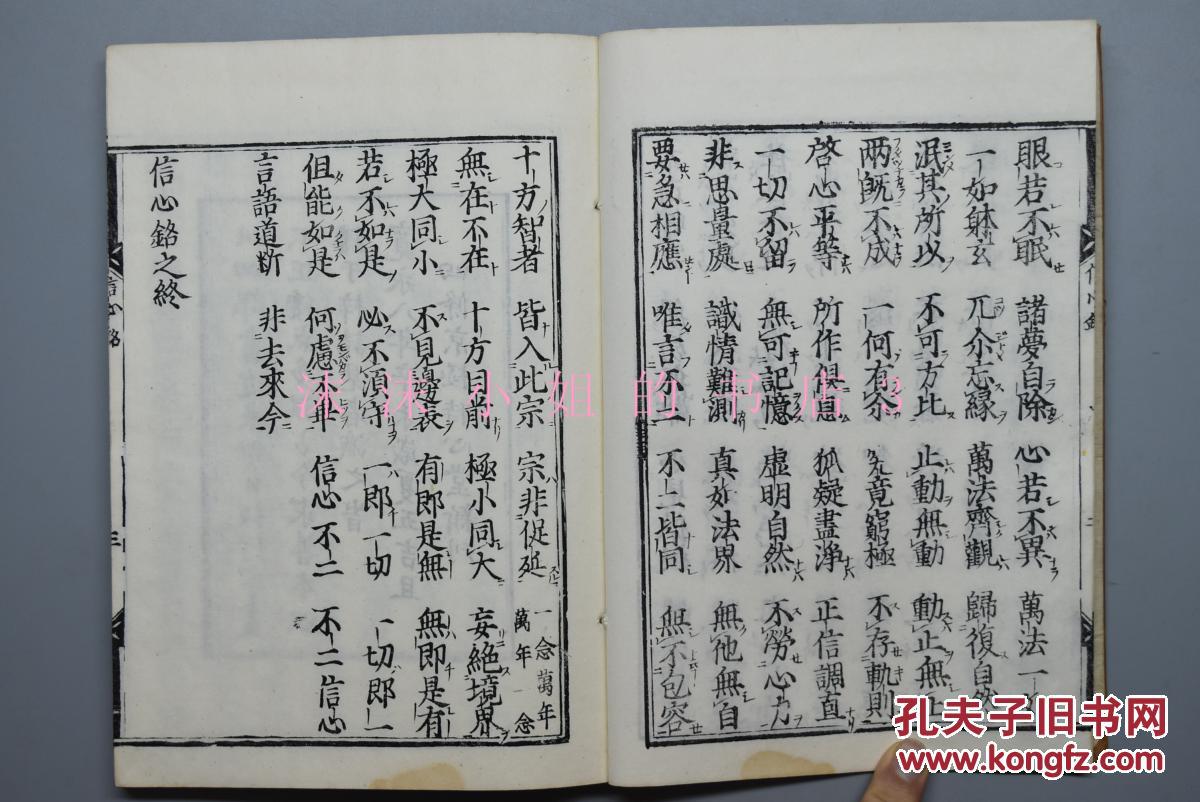 眼若不眠 諸夢自除 心若不異 萬法一
一如躰玄 兀尒忘緣 萬法齊觀 歸復自然
泯其所以 不可方比 止動無動 動止無
兩既不成 一何有尒 究竟窮極 不存軌則
啓心平等 所作俱息 狐疑盡淨 正信調直
一切不留 無可記憶 虛明自然 不勞心力
非思量處 識情難測 真如法界 無他無自
要急相應 唯言不二 不二皆同 無不包容
十方智者 皆入此宗 宗非促延 一念萬年 萬年一念
無在不在 十方目前 極小同大 妄絕境界
極大同小 不見邊表 有即是無 無即是有
若不如是 必不須守 一即一切 一切即一
但能如是 何慮不畢 信心不二 不二信心
言語道斷 非去來今
信心銘之終
信心銘
三
沐沐小姐的书店3
孔夫子旧书网
kongfz.com